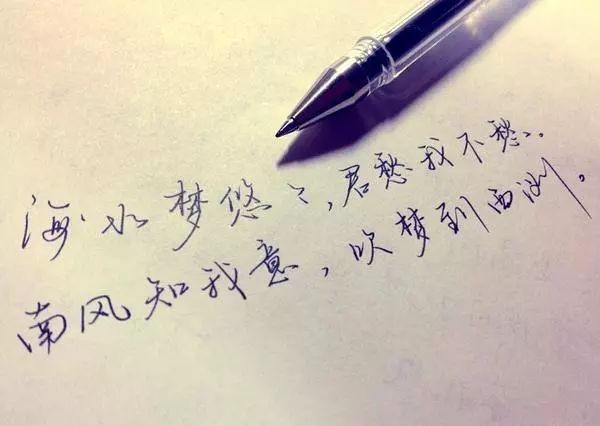 海水梦悠〻，君愁我不愁。
南风知我意，吹梦到西洲。